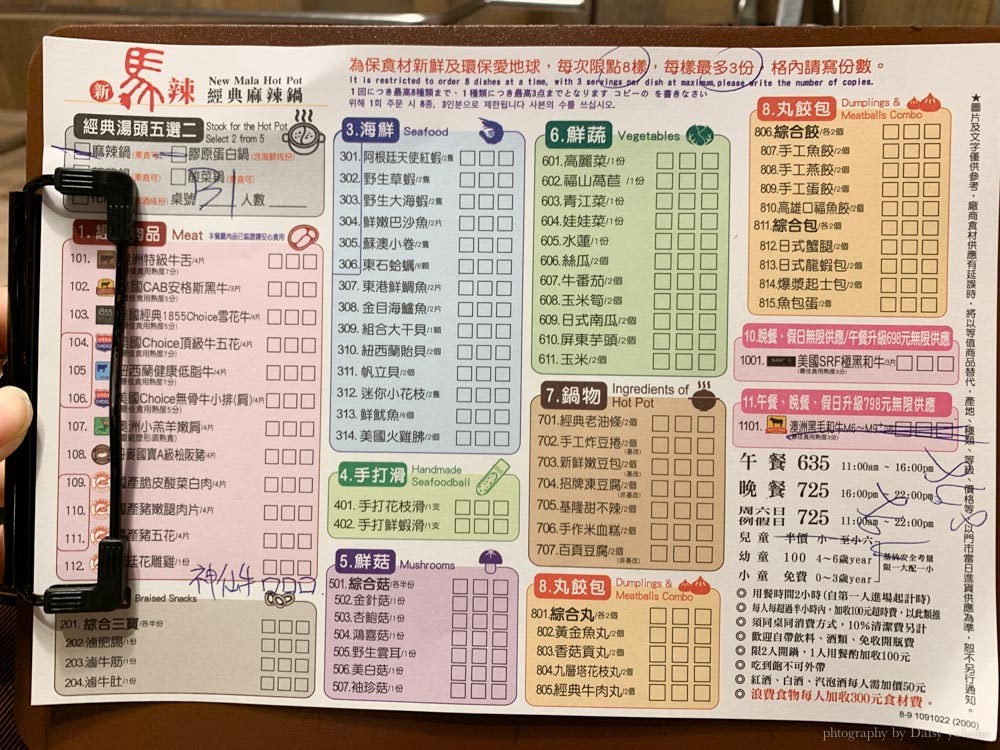 新馬辣
New Mala Hot Pot
經典麻辣鍋
為保食材新鮮及環保愛地球，每次限點8樣，每樣最多3份，格內請寫份數。
It is restricted to order 8 dishes at a time, with 3 servings per dish at maximum, please write the number of copies.
1回につき最高8種類まで、1種類につき最高3点までとなります コピーの を書きなさい
위해 1회 주문 시 8종, 3인분으로 제한됩니다 사본의 수를 쓰십시오.
經典湯頭五選二 Stock for the Hot Pot
Select 2 from 5
麻辣鍋(素食可) 膠原蛋白鍋(含海鮮成份)
(素食可) 酸菜鍋
桌號 131 人數
1. 肉品 Meat 本餐廳肉品已溫證請安心食用
101. 洲特級牛舌/4片
(最佳食用熟度7分)
102. 國CAB安格斯黑牛/3片
(最佳食用熟度5分)
103. 國經典1855Choice雪花牛/4片
(最佳食用熟度5分)
104. 國Choice頂級牛五花/4片
(最佳食用熟度7分)
105. 紐西蘭健康低脂牛/4片
(最佳食用熟度5分)
106. 美國Choice無骨牛小排(肩)/4片
(最佳食用熟度5分)
107. 澳洲小羔羊嫩肩/4片
108. 麥國寶A級松阪豬/4片
109. 產脆皮酸菜白肉/4片
110. 產豬嫩腿肉片/4片
111. 產豬五花/4片
112. 花雕雞/1份
神仙牛
Braised Snacks
201. 綜合三寶/各半份
202. 滷肥腸/1份
203. 滷牛筋/1份
204. 滷牛肚/1份
3.海鮮 Seafood
301. 阿根廷天使紅蝦/2隻
302. 野生草蝦/2隻
303. 野生大海蝦/2隻
304. 鮮嫩巴沙魚/2片
305. 蘇澳小卷/2隻
306. 東石蛤蠣/6顆
307. 東港鮮鯛魚/2片
308. 金目海鱸魚/2片
309. 組合大干貝/1顆
310. 紐西蘭貽貝/2個
311. 帆立貝/2個
312. 迷你小花枝/2隻
313. 鮮魷魚/6個
314. 美國火雞胗/2個
4.手打滑 Handmade
Seafoodball
401. 手打花枝滑/1支
402. 手打鮮蝦滑/1支
5.鮮菇 Mushrooms
501. 綜合菇/各半份
502. 金針菇/1份
503. 杏鮑菇/1份
504. 鴻喜菇/1份
505. 野生雲耳/1份
506. 美白菇/1份
507. 袖珍菇/1份
6.鮮蔬 Vegetables
601. 高麗菜/1份
602. 福山萵苣 /1份
603. 青江菜/1份
604. 娃娃菜/1份
605. 水蓮/1份
606. 絲瓜/2個
607. 牛番茄/2個
608. 玉米筍/2個
609. 日式南瓜/2個
610. 屏東芋頭/2個
611. 玉米/2個
7.鍋物 Ingredients of
Hot Pot
701. 經典老油條/2個
702. 手工炸豆捲/2個
(基改)
703. 新鮮嫩豆包/2個
(基改)
704. 招牌凍豆腐/2個
(非基改)
705. 基隆甜不辣/2個
706. 手作米血糕/2個
707. 百頁豆腐/2個
(非基改)
8.丸餃包 Dumplings &
Meatballs Combo
801. 綜合丸/各2個
802. 黃金魚丸/2個
803. 香菇貢丸/2個
804. 九層塔花枝丸/2個
805. 經典牛肉丸/2個
8.丸餃包 Dumplings &
Meatballs Combo
806. 綜合餃/各2個
807. 手工魚餃/2個
808. 手工燕餃/2個
809. 手工蛋餃/2個
810. 高雄口福魚餃/2個
811. 綜合包/各2個
812. 日式蟹腿/2個
813. 日式龍蝦包/2個
814. 爆漿起士包/2個
815. 魚包蛋/2個
10.晚餐、假日無限供應/午餐升級698元無限供應
1001. 美國SRF極黑和牛/3片
(最佳食用熟度3分)
11.午餐、晚餐、假日升級798元無限供應
1101. 澳洲黑毛和牛M6～M9+
(最佳食用熟度3分)
午餐 635 11:00am ~ 16:00pm
晚餐 725 16:00pm ~ 22:00pm
周六日
例假日 725 11:00am ~ 22:00pm
兒童 半價 小一至小六
幼童 100 4~6歲year
小童 免費 0~3歲year
基於安全考量
限一大配一小
◎ 用餐時間2小時(自第一人進場起計時)
◎ 每人每超過半小時內，加收100元超時費，以此類推
◎ 須同桌同消費方式，10%清潔費另計
◎ 歡迎自帶飲料、酒類、免收開瓶費
◎ 限2人開鍋，1人用餐酌加收100元
◎ 吃到飽不可外帶
◎ 紅酒、白酒、汽泡酒每人需加價50元
◎ 浪費食物每人加收300元食材費。
8-9 1091022 (2000)
★圖片及文字僅供參考，廠商食材供應有延誤時，將以等值商品替代，產地、種類、等級、價格等以門市當日進貨供應為準，恕不另行通知。
photography by Daisy